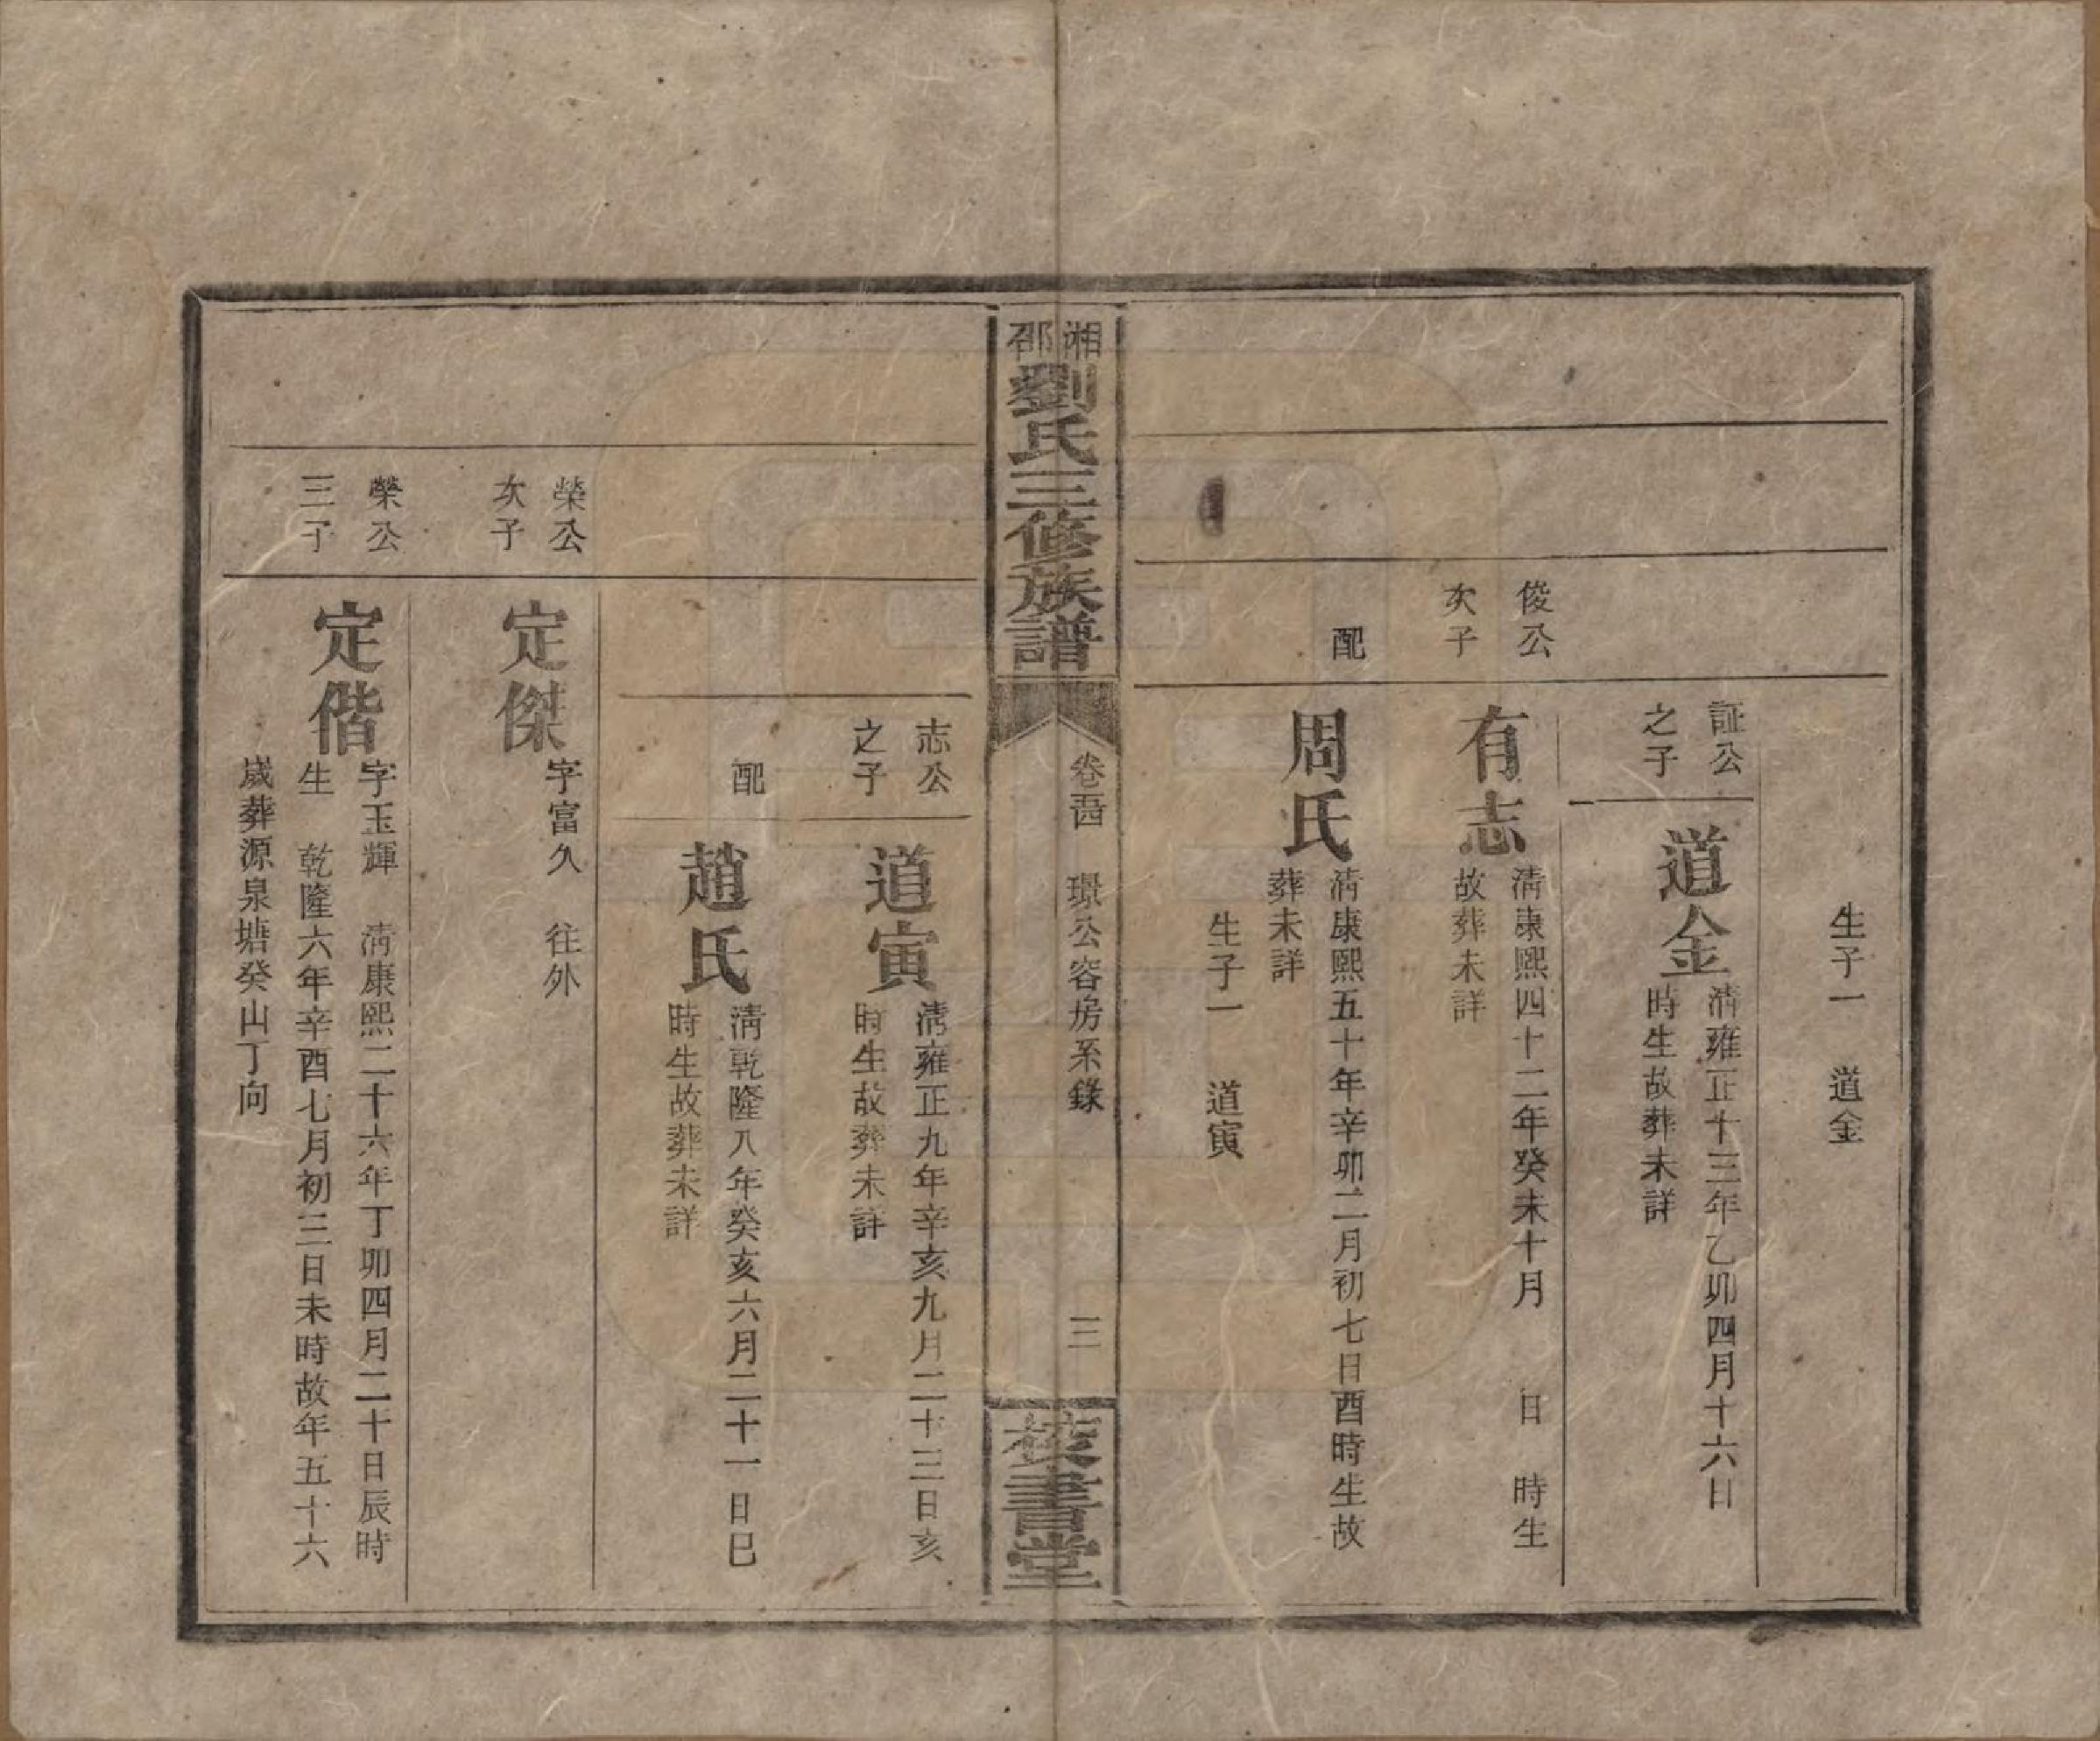 生子一　道金
証公
之子
道金
清雍正十三年乙卯四月十六日
時生故葬未詳
俊公
次子
有志
清康熙四十二年癸未十月　日　時生
故葬未詳
配
周氏
清康熙五十年辛卯二月初七日酉時生故
葬未詳
生子一　道寅
湘邵劉氏三修族譜
卷　璟公容房系錄
三
校書堂
志公
之子
道寅
清雍正九年辛亥九月二十三日亥
時生故葬未詳
配
趙氏
清乾隆八年癸亥六月二十一日巳
時生故葬未詳
榮公
次子
定傑
字富久　往外
榮公
三子
定偕
字玉輝　清康熙二十六年丁卯四月二十日辰時
生　乾隆六年辛酉七月初三日未時故年五十六
歲葬源泉塘癸山丁向